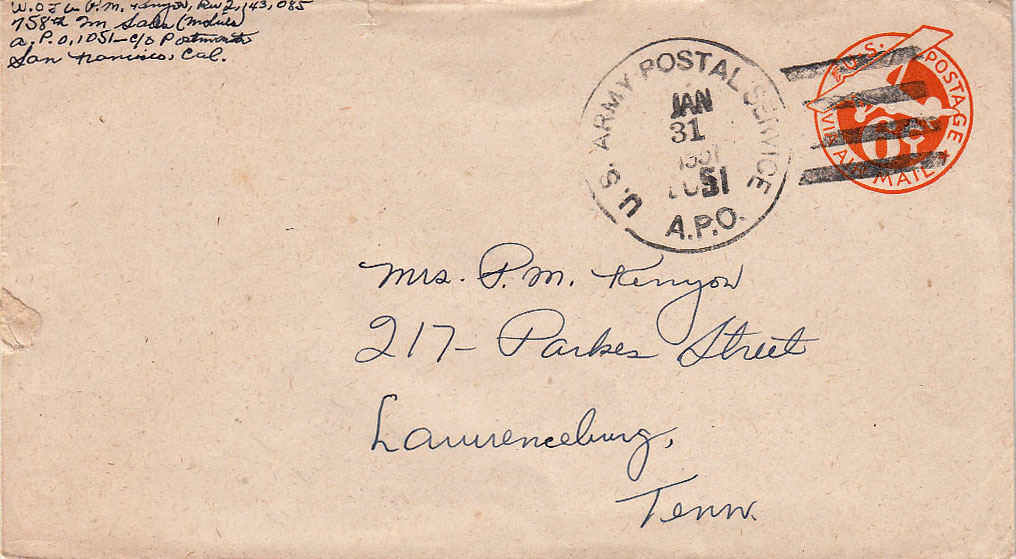 W.O.J.G. P.M. Kenyon, RW2,143,085
758th Qm Sales (Mobile)
A.P.O. 1051-c/o Postmaster
San Francisco, Cal.
U.S. ARMY POSTAL SERVICE
JAN
31
1051
A.P.O.
U.S. POSTAGE
6¢
VIA AIR MAIL
Mrs. P.M. Kenyon
217- Parkes Street
Lawrenceburg,
Tenn.